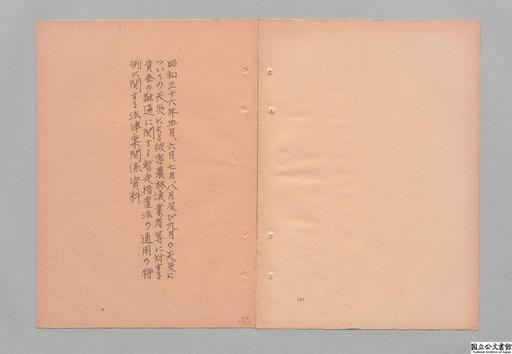 昭和三十六年五月、六月、七月、八月及び九月の天災に
ついての天災による被害農林漁業者等に対する
資金の融通に関する暫定措置法の適用の特
例に関する法律案関係資料
国立公文書館
National Archives of Japan